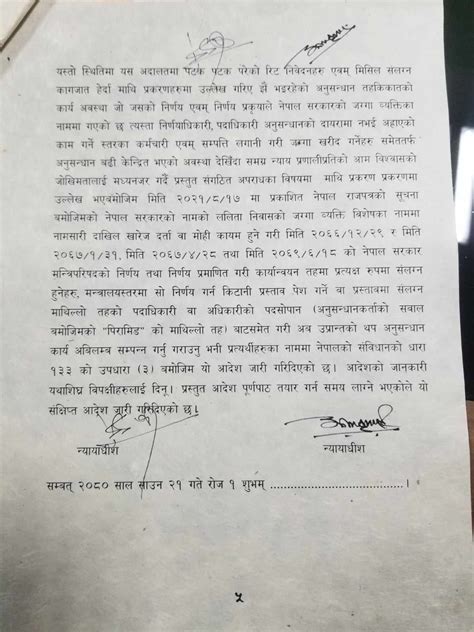 यस्तो स्थितिमा यस अदालतमा पटक पटक परेको रिट निवेदनहरु एवम् मिसिल संलग्न
कागजात हेर्दा माथि प्रकरणहरुमा उल्लेख गरिए झैं भइरहेको अनुसन्धान तहकिकातको
कार्य अवस्था जो जसको निर्णय एवम् निर्णय प्रकृयाले नेपाल सरकारको जग्गा व्यक्तिका
नाममा गएको छ त्यस्ता निर्णयाधिकारी, पदाधिकारी अनुसन्धानको दायरामा नभई अह्राएको
काम गर्ने स्तरका कर्मचारी एवम् सम्पत्ति लगानी गरी जग्गा खरीद गर्नेहरु समेततर्फ
अनुसन्धान बढी केन्द्रित भएको अवस्था देखिँदा समग्र न्याय प्रणालीप्रतिको आम विश्वासको
जोखिमतालाई मध्यनजर गर्दै प्रस्तुत संगठित अपराधका विषयमा माथि प्रकरण प्रकरणमा
उल्लेख भएबमोजिम मिति २०२१/८/१७ मा प्रकाशित नेपाल राजपत्रको सूचना
बमोजिमको नेपाल सरकारको नामको ललिता निवासको जग्गा व्यक्ति विशेषका नाममा
नामसारी दाखिल खारेज दर्ता वा मोही कायम हुने गरी मिति २०६६/१२/२९ र मिति
२०६७/१/३१, मिति २०६७/४/२८ तथा मिति २०६९/६/१८ को नेपाल सरकार
मन्त्रिपरिषदको निर्णय तथा निर्णय प्रमाणित गरी कार्यान्वयन तहमा प्रत्यक्ष रुपमा संलग्न
हुनेहरु, मन्त्रालयस्तरमा सो निर्णय गर्न किटानी प्रस्ताव पेश गर्ने वा प्रस्तावमा संलग्न
माथिल्लो तहको पदाधिकारी वा अधिकारीको पदसोपान (अनुसन्धानकर्ताको सवाल
बमोजिमको "पिरामिड" को माथिल्लो तह) बाटसमेत गरी अब उप्रान्तको थप अनुसन्धान
कार्य अबिलम्ब सम्पन्न गर्नु गराउनु भनी प्रत्यर्थीहरुका नाममा नेपालको संविधानको धारा
१३३ को उपधारा (३) बमोजिम यो आदेश जारी गरिदिएको छ। आदेशको जानकारी
यथाशिघ्र विपक्षीहरुलाई दिनू। प्रस्तुत आदेश पूर्णपाठ तयार गर्न समय लाग्ने भएकोले यो
संक्षिप्त आदेश जारी गरिदिएको छ।
न्यायाधीश न्यायाधीश
सम्बत् २०८० साल साउन २१ गते रोज १ शुभम् .......................................।
५